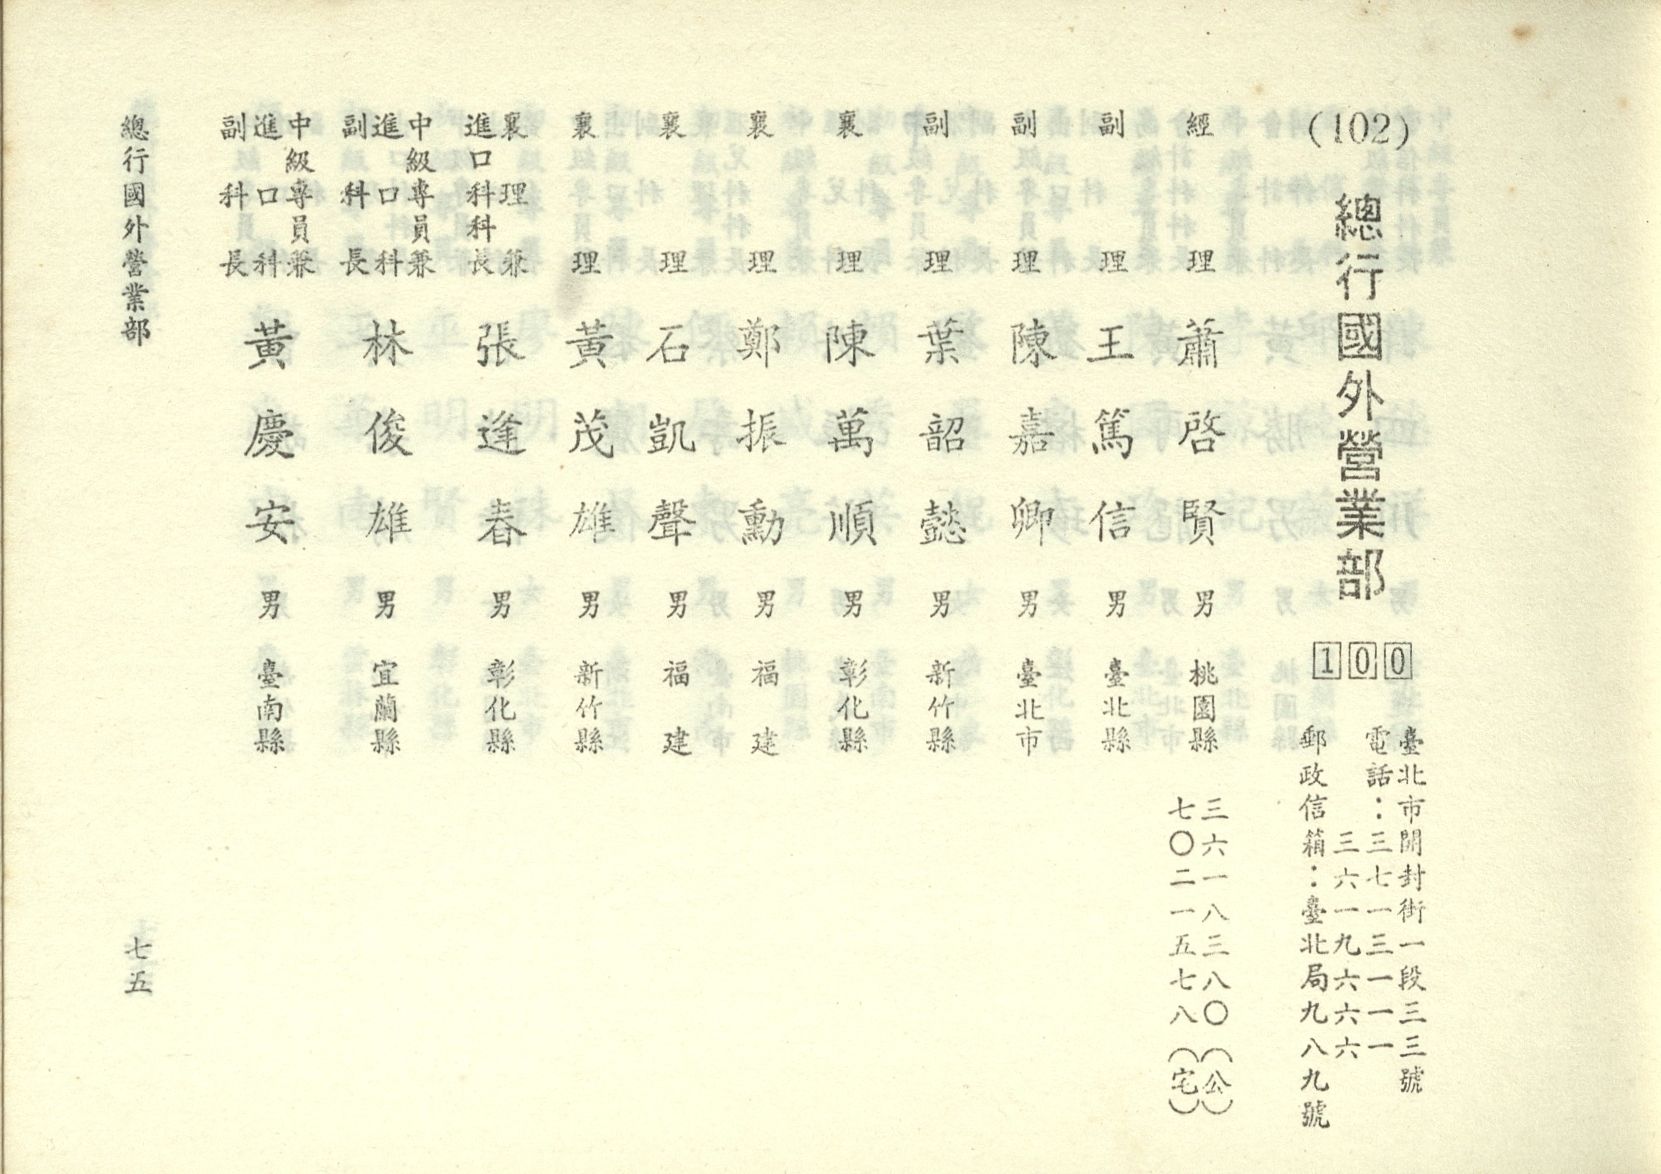 (102)
總行國外營業部
100
臺北市開封街一段三三號
電話：三七一三一一一
三六一九六六六
郵政信箱：臺北局九八九號
經理 蕭啓賢 男 桃園縣
三六一八三八〇（公）
七〇二一五七八（宅）
副理 王篤信 男 臺北縣
副理 陳嘉卿 男 臺北市
副理 葉韶懿 男 新竹縣
襄理 陳萬順 男 彰化縣
襄理 鄭振勳 男 福建
襄理 石凱聲 男 福建
襄理 黃茂雄 男 新竹縣
襄理兼
進口科科長 張逢春 男 彰化縣
中級專員兼
進口科
副科長 林俊雄 男 宜蘭縣
中級專員兼
進口科
副科長 黃慶安 男 臺南縣
總行國外營業部
七五